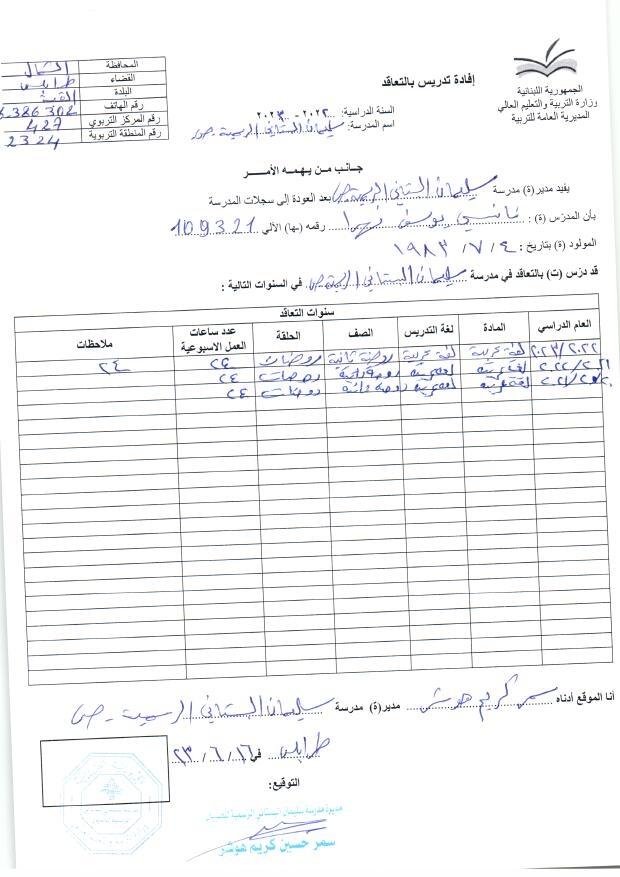 الجمهورية اللبنانية
وزارة التربية والتعليم العالي
المديرية العامة للتربية
إفادة تدريس بالتعاقد
السنة الدراسية: ٢٠٢٢ - ٢٠٢٣
اسم المدرسة: سليمان البستاني الرسمية
المحافظة الشمال
القضاء طرابلس
البلدة القبة
رقم الهاتف 386302
رقم المركز التربوي 427
رقم المنطقة التربوية 2324
جانب من يهمه الأمر
يفيد مدير(ة) مدرسة سليمان البستاني الرسمية بعد العودة إلى سجلات المدرسة
بأن المدرّس (ة): نانسي يوسف رقمه (ها) الآلي 109321
المولود (ة) بتاريخ: ٤ / ٧ / ١٩٨٣
قد درّس (ت) بالتعاقد في مدرسة سليمان البستاني الرسمية في السنوات التالية :
سنوات التعاقد
العام الدراسي المادة لغة التدريس الصف الحلقة عدد ساعات العمل الاسبوعية ملاحظات
٢٠٢٢/٢٠٢٣ لغة عربية لغة عربية روضة ثانية روضات ٢٤ ٢٤
٢٠٢١/٢٠٢٢ لغة عربية روضات ٢٤
لغة عربية روضات ٢٤
أنا الموقع أدناه سمر كريم هوشر مدير(ة) مدرسة سليمان البستاني الرسمية
طرابلس في ١٦ / ٦ / ٢٣
التوقيع:
مديرة مدرسة سليمان البستاني الرسمية
سمر حسين كريم هوشر